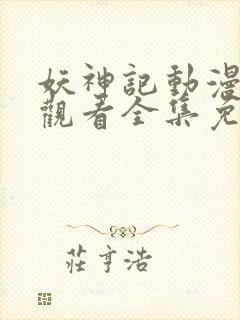 妖神記動漫
觀看全集免
莊亨浩